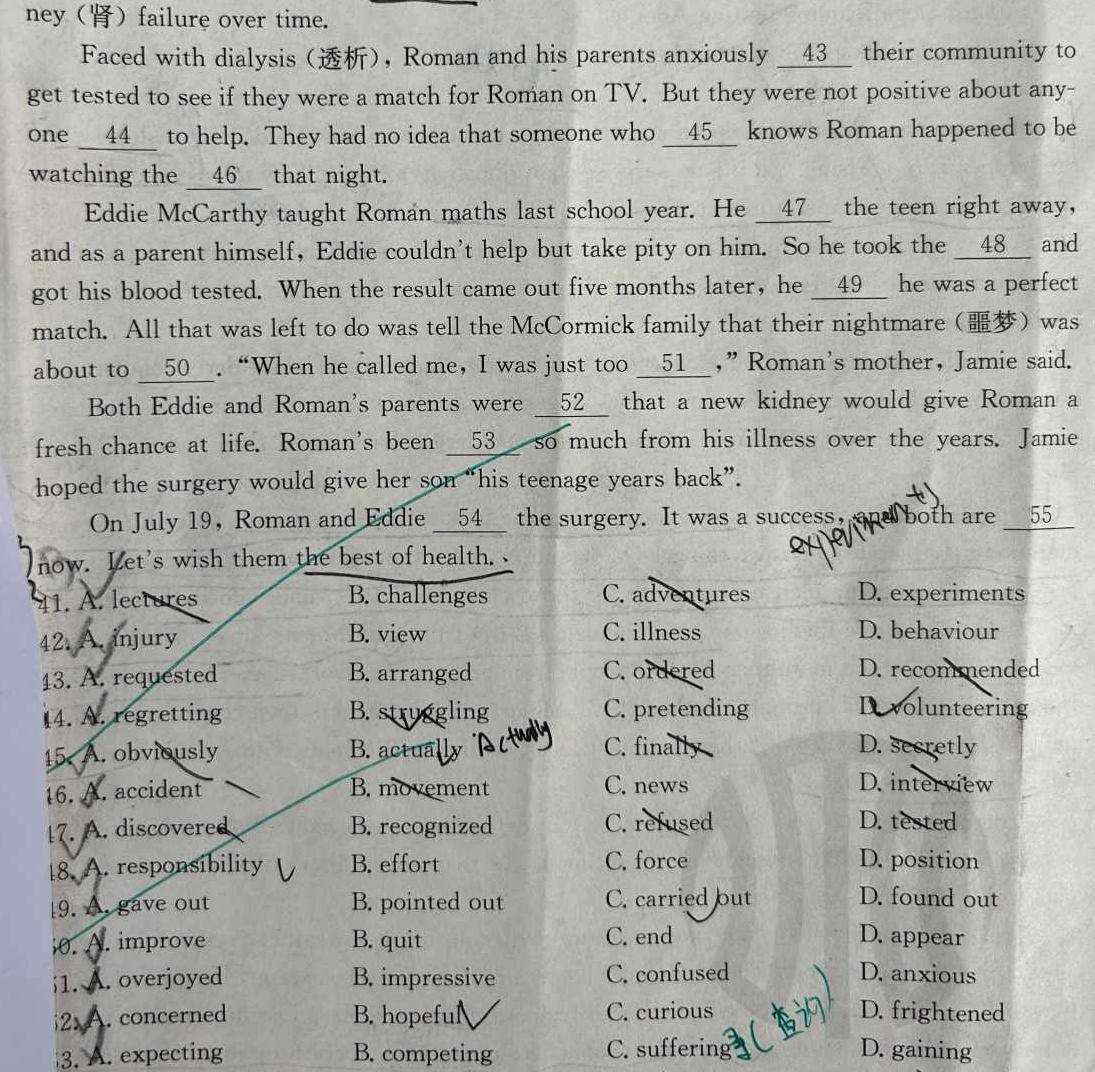 ney（肾）failure over time.
Faced with dialysis（透析），Roman and his parents anxiously 43 their community to
get tested to see if they were a match for Roman on TV. But they were not positive about any-
one 44 to help. They had no idea that someone who 45 knows Roman happened to be
watching the 46 that night.
Eddie McCarthy taught Roman maths last school year. He 47 the teen right away,
and as a parent himself, Eddie couldn't help but take pity on him. So he took the 48 and
got his blood tested. When the result came out five months later, he 49 he was a perfect
match. All that was left to do was tell the McCormick family that their nightmare（噩梦）was
about to 50 . “When he called me, I was just too 51 ,” Roman's mother, Jamie said.
Both Eddie and Roman's parents were 52 that a new kidney would give Roman a
fresh chance at life. Roman's been 53 so much from his illness over the years. Jamie
hoped the surgery would give her son “his teenage years back”.
On July 19, Roman and Eddie 54 the surgery. It was a success, and both are 55
now. Let's wish them the best of health.
41. A. lectures B. challenges C. adventures D. experiments
42. A. injury B. view C. illness D. behaviour
43. A. requested B. arranged C. ordered D. recommended
44. A. regretting B. struggling C. pretending D. volunteering
45. A. obviously B. actually Actually C. finally D. secretly
46. A. accident B. movement C. news D. interview
47. A. discovered B. recognized C. refused D. tested
48. A. responsibility B. effort C. force D. position
49. A. gave out B. pointed out C. carried out D. found out
50. A. improve B. quit C. end D. appear
51. A. overjoyed B. impressive C. confused D. anxious
52. A. concerned B. hopeful C. curious D. frightened
53. A. expecting B. competing C. suffering D. gaining